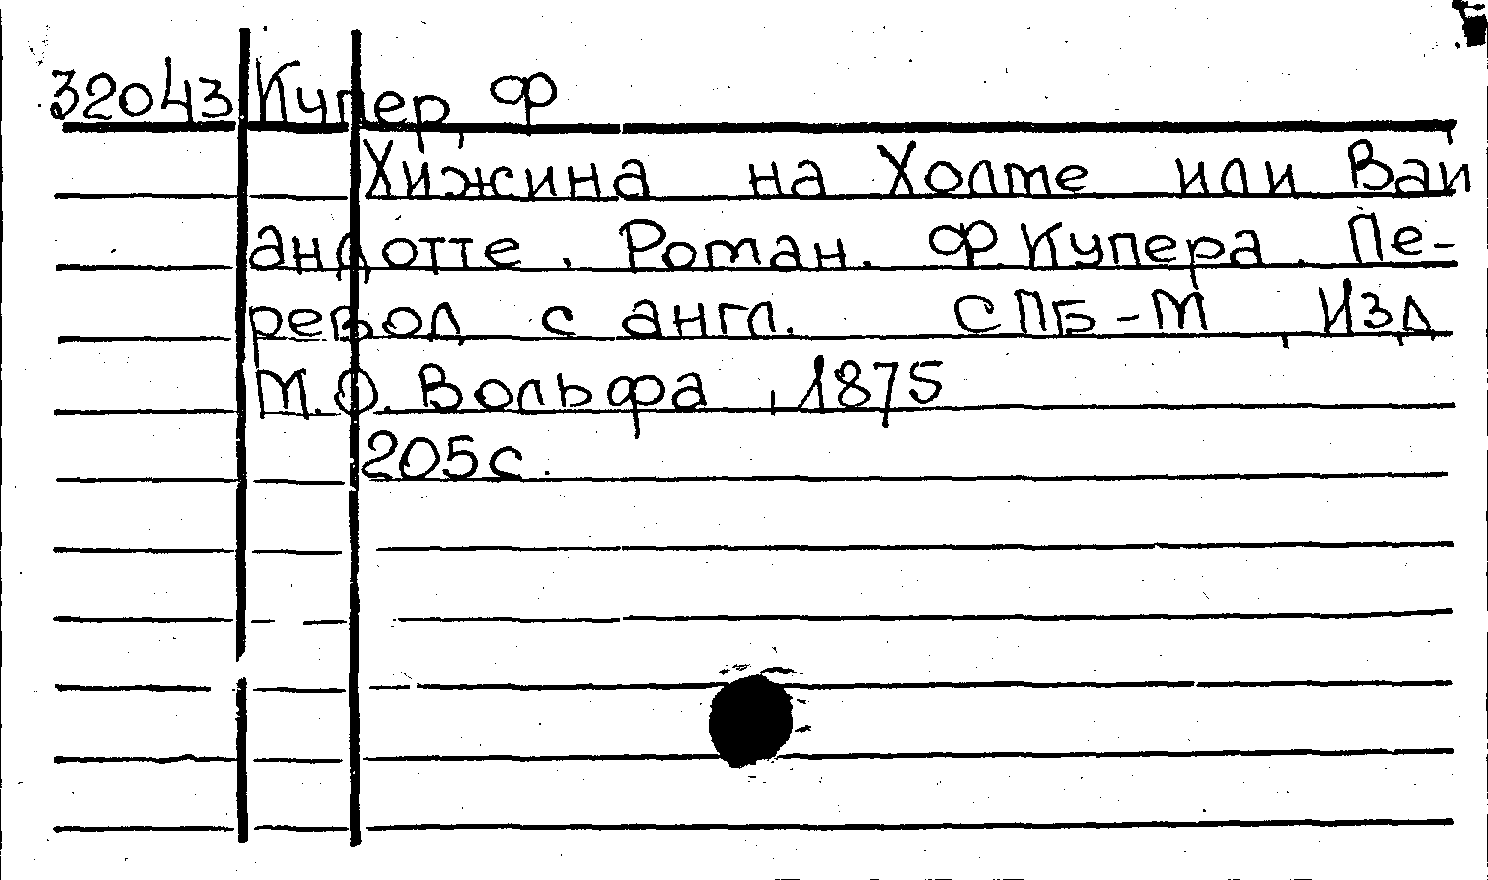 32043 Купер, Ф
Хижина на Холме или Вай
андотте. Роман. Ф. Купера. Пе-
ревод с англ. СПБ-М, Изд.
М.О. Вольфа, 1875
205с.